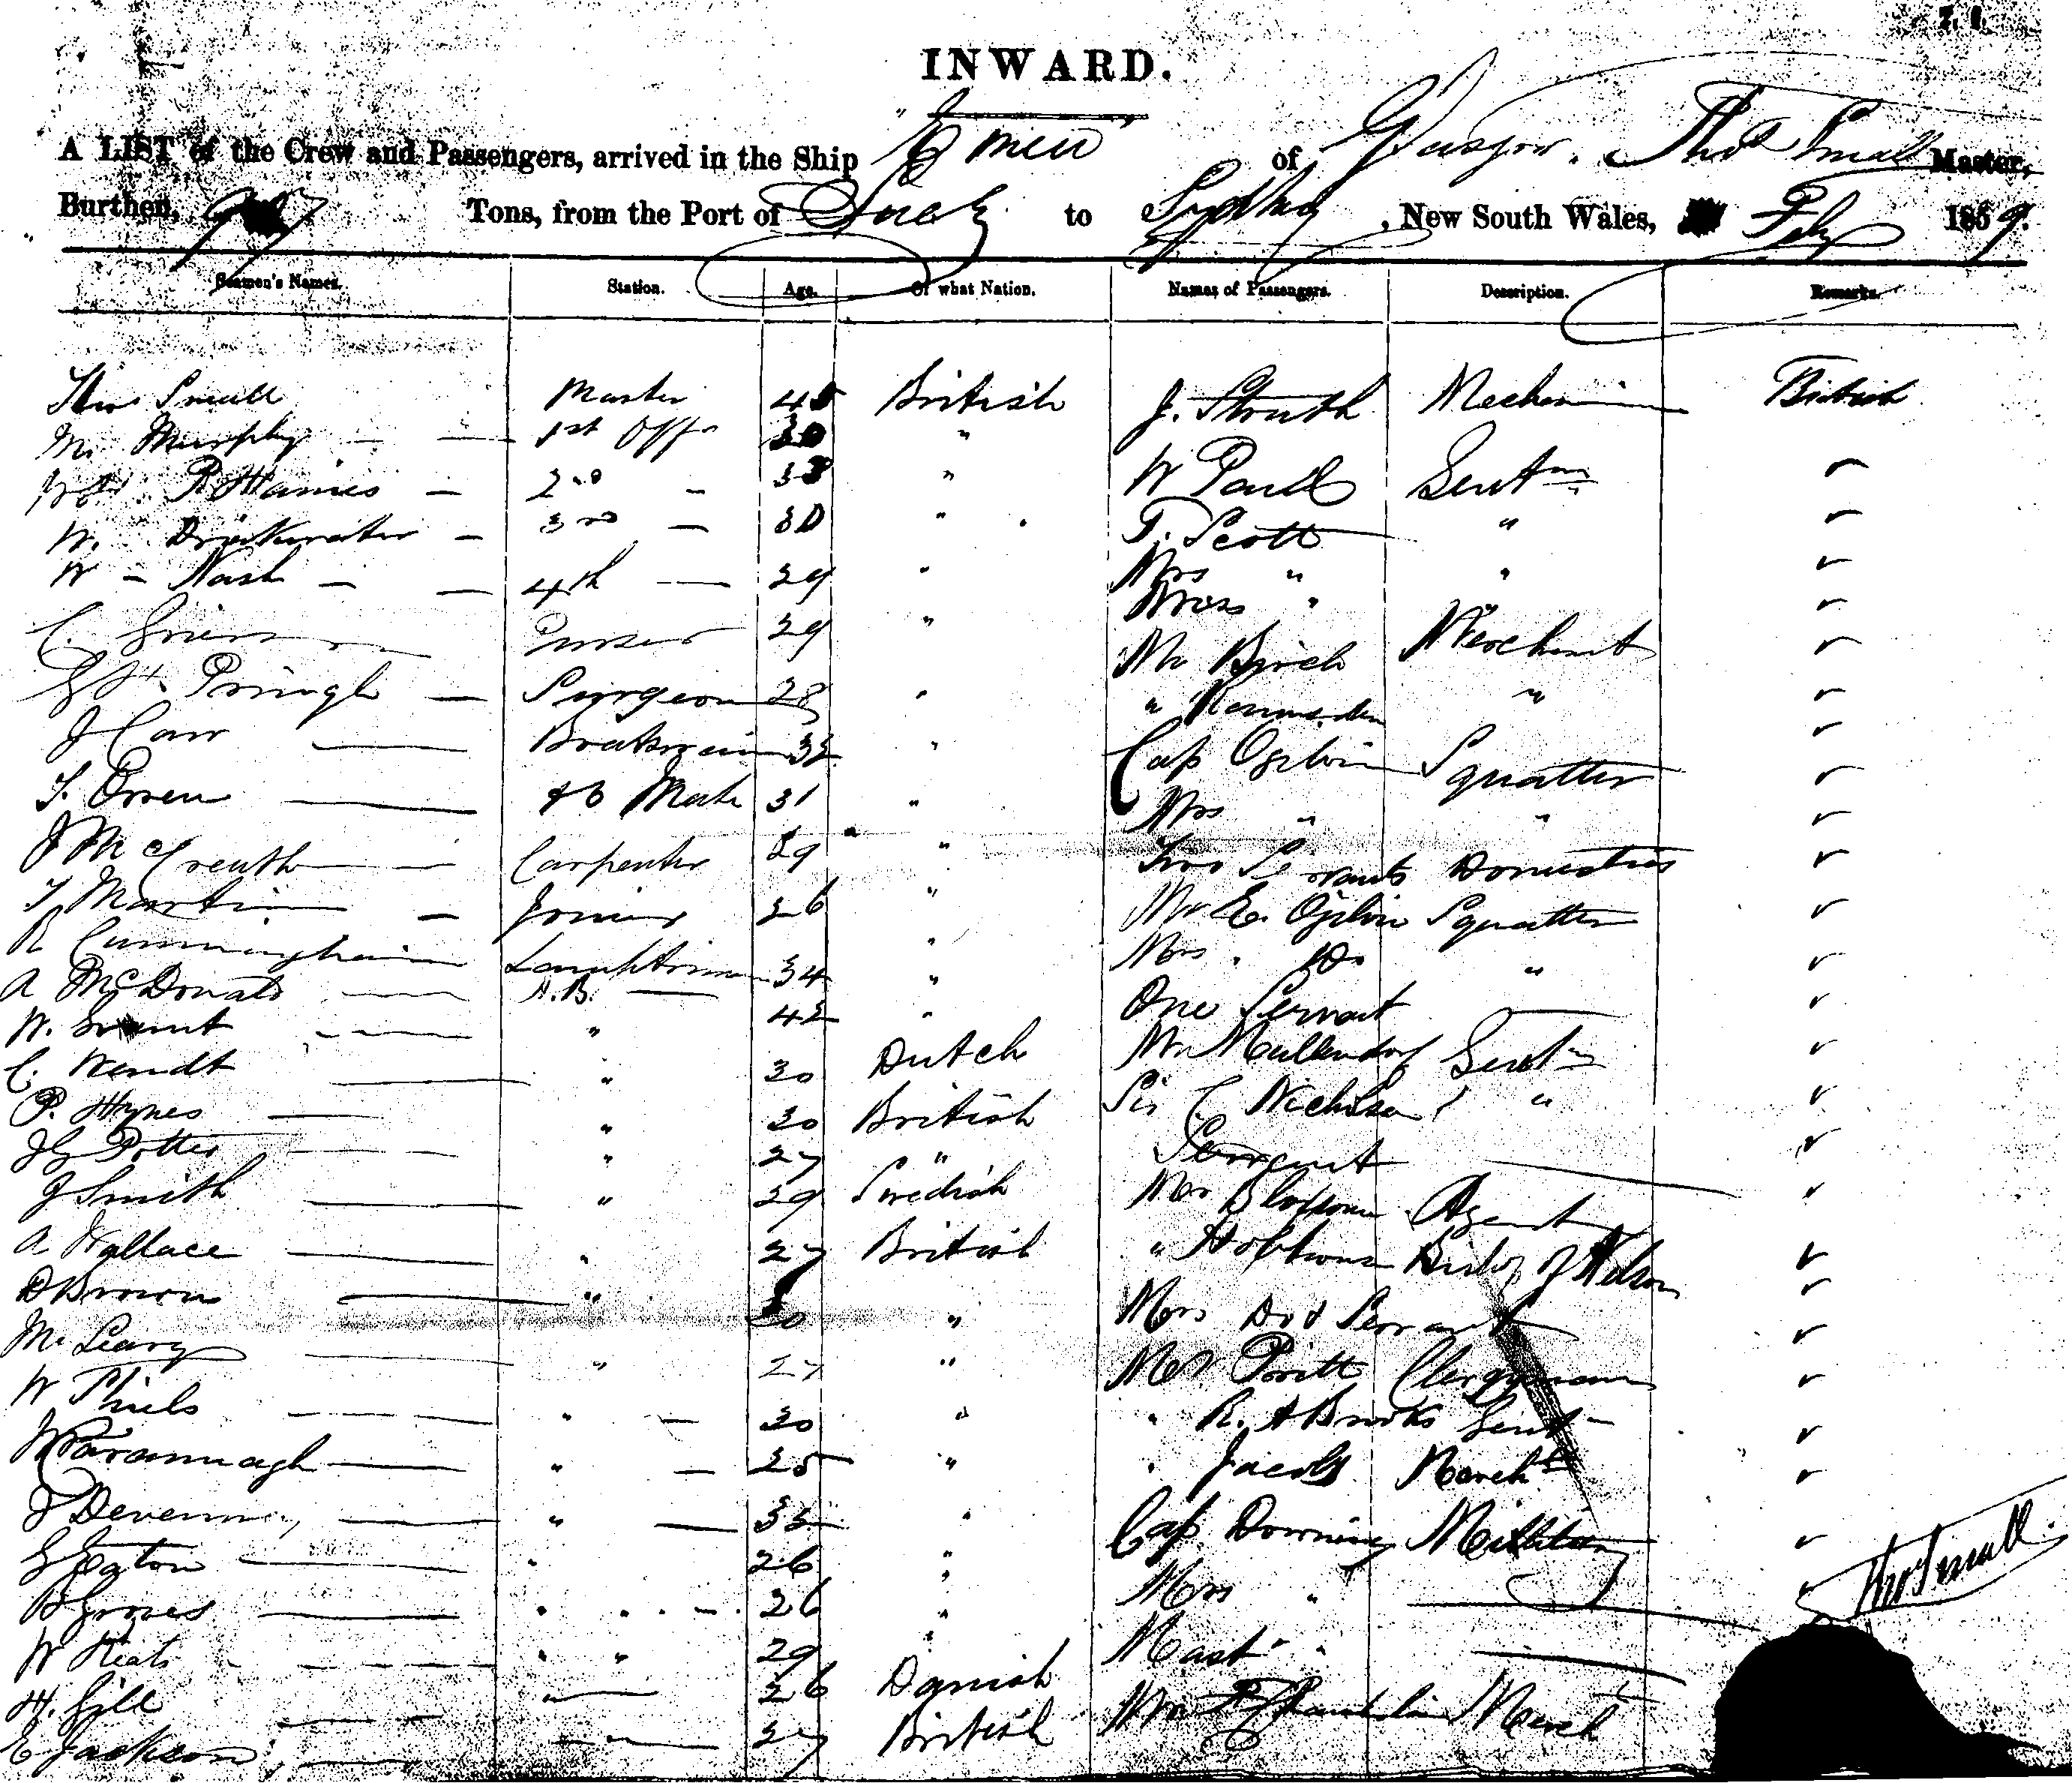 INWARD.
A LIST of the Crew and Passengers, arrived in the Ship "Emeu" of Glasgow. Thos Small Master,
Burthen, Tons, from the Port of Suez to Sydney, New South Wales, Feby 1859.
Seamen's Names. Station. Age. Of what Nation. Names of Passengers. Description. Remarks.
Thos Small Master 45 British J. Struth British
M. Murphy 1st Offr "
2nd 33 " W Paull Gentmn
W. Drinkwater 3rd 30 " T. Scott "
W Nash 4th 29 " Mrs " "
C. Purser 29 " Miss " "
Pringle Surgeon 28 " Mr Birch Merchant
J Carr Boatswain 32 " " "
T. Owen Mate 31 " Cap Ogilvie Squatter
J McCreath Carpenter 29 " Mrs " "
T Martin Joiner 26 " Two Servants Domestics
R Cunningham Lamptrimmer 34 " Mr E. Ogilvie Squatter
A McDonald A.B. " Mrs Do "
W. Grant " 42 " One Servant
C. Wendt " 30 Dutch Mr Mullendorf Gentn
P. Hynes " 30 British Sir C Nicholson "
J G Potter " 27 " Servant
J Smith " 29 Swedish Mr Blossom Agent
A Wallace " 27 British " Hobhouse Bishop of Nelson
D Brown " 30 " Mrs Do & Servant
M. Leary " 27 " Mr Pritt Clergyman
W Shiels " 30 " " R. A Brooks Gent
W Cavannagh " 25 " " Jacobs Mercht
J Devenny " 32 " Cap. Downing Military
G Eaton " 26 " Mrs "
B Groves " 26 " Mast "
W Keats " 29 "
H. Gill " 26 Danish Mr Franklin Merch
E Jackson " 27 British
Thos Small